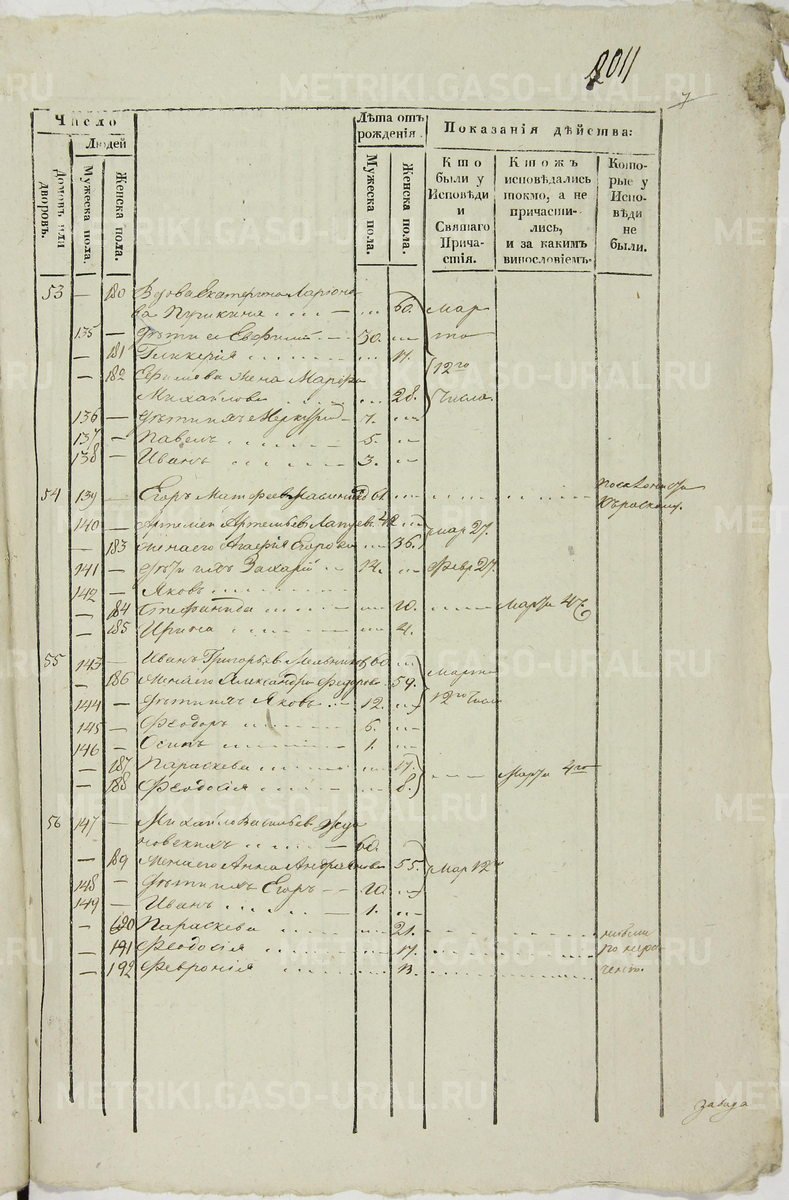 2011
7
Число
Людей
Домовъ или дворовъ.
Мужеска пола.
Женска пола.
Лѣта отъ рожденія.
Мужеска пола.
Женска пола.
Показанія дѣйства:
Кто были у Исповѣди и Святаго Причастія.
Ктожъ исповѣдались токмо, а не причастились, и за какимъ винословіемъ.
Которые у Исповѣди не были.
53 — 180 Вдова Екатерина Ларіоно-
ва Пушкина 60. Мар
135 — Дѣти ея Евфимій 30. та
— 181 Гликерія 11. 12го
— 182 Ефимова жена Марфа
Михайлова 28. Числа
136 — Дѣти ихъ Меркурій 7.
137 — Павелъ 5.
138 — Иванъ 3.
54 139 — Егоръ Матфеев 61
140 — Артемей Артемьев 42
— 183 Жена его Агафія Егорова 36. Мар 27.
141 — Дѣти ихъ Захарій 14. Февр 27.
142 — Яковъ
— 184 Стефанида 10. Марта 4
— 185 Ирина 4.
55 143 — Иванъ Григорьев Мельников 60
— 186 Жена его Александра Федорова 54. Марта
144 — Дѣти ихъ Яковъ 12. 12го Числа
145 — Феодоръ 6.
146 — Осипъ 1.
— 187 Параскева 17.
— 188 Феодосія 8. Марта 4го
56 147 — Михайло Васильев
новскихъ 60.
— 189 Жена его Анна Андреянова 55. Мар 12
148 — Дѣти ихъ Егоръ 20.
149 — Иванъ 1.
— 190 Параскева 21. небыли
— 191 Феодосія 17. по нера-
— 192 Феврония 13.
завода
METRIKI.GASO-URAL.RU